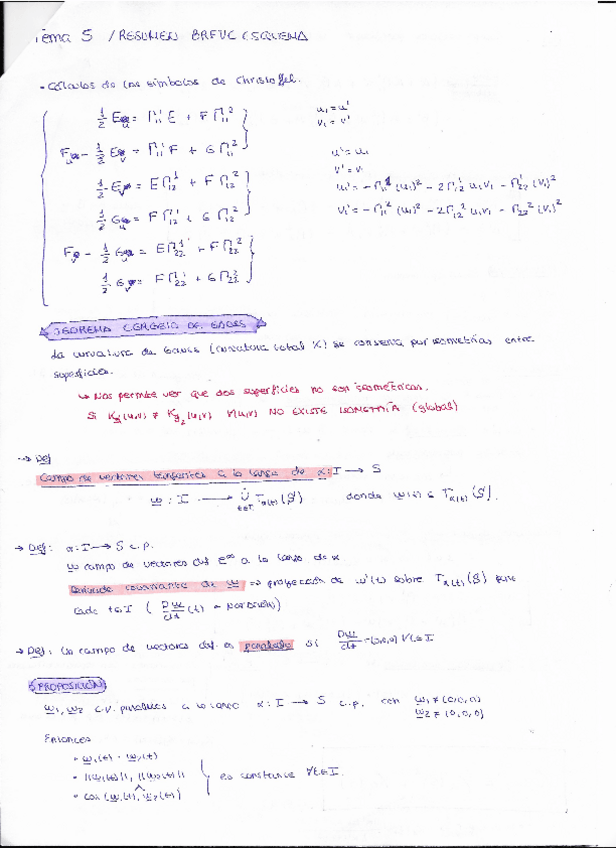 Tema 5 / RESUMEN BREVE ESQUEMA
- Cálculos de los símbolos de Christoffel.
½ E_u = Γ₁₁¹ E + F Γ₁₁²
F_u - ½ E_v = Γ₁₁¹ F + G Γ₁₁²
½ E_v = E Γ₁₂¹ + F Γ₁₂²
½ G_u = F Γ₁₂¹ + G Γ₁₂²
F_v - ½ G_u = E Γ₂₂¹ + F Γ₂₂²
½ G_v = F Γ₂₂¹ + G Γ₂₂²
u₁ = u'
v₁ = v'
u' = u₁
v' = v₁
u₁' = - Γ₁₁¹ (u₁)² - 2Γ₁₂¹ u₁v₁ - Γ₂₂¹ (v₁)²
v₁' = - Γ₁₁² (u₁)² - 2Γ₁₂² u₁v₁ - Γ₂₂² (v₁)²
TEOREMA EGREGIO DE GAUSS
La curvatura de Gauss (curvatura total K) se conserva por isometrías entre
superficies.
↳ Nos permite ver que dos superficies no son isométricas.
Si (u,v) ≠ (u,v) ∀(u,v) NO EXISTE ISOMETRÍA (global)
→ Def
Campo de vectores tangentes a lo largo de α: I → S
w: I → ∪ T_α(t) (S) donde w(t) ∈ T_α(t) (S).
t∈I
→ Def: α: I → S c.p.
w campo de vectores dif C^∞ a lo largo de α
Derivada covariante de w ⇒ proyección de w'(t) sobre T_α(t) (S) para
cada t∈I ( Dw/dt (t) = notación)
→ Def: Un campo de vectores dif. es paralelo si Dw/dt = (0,0,0) ∀t∈I
PROPOSICIÓN
w₁, w₂ c.v. paralelos a lo largo α: I → S c.p. con w₁ ≠ (0,0,0)
w₂ ≠ (0,0,0)
Entonces
- w₁(t) · w₂(t)
- ||w₁(t)||, ||w₂(t)||
- cos (w₁(t), w₂(t))
es constante ∀t∈I.